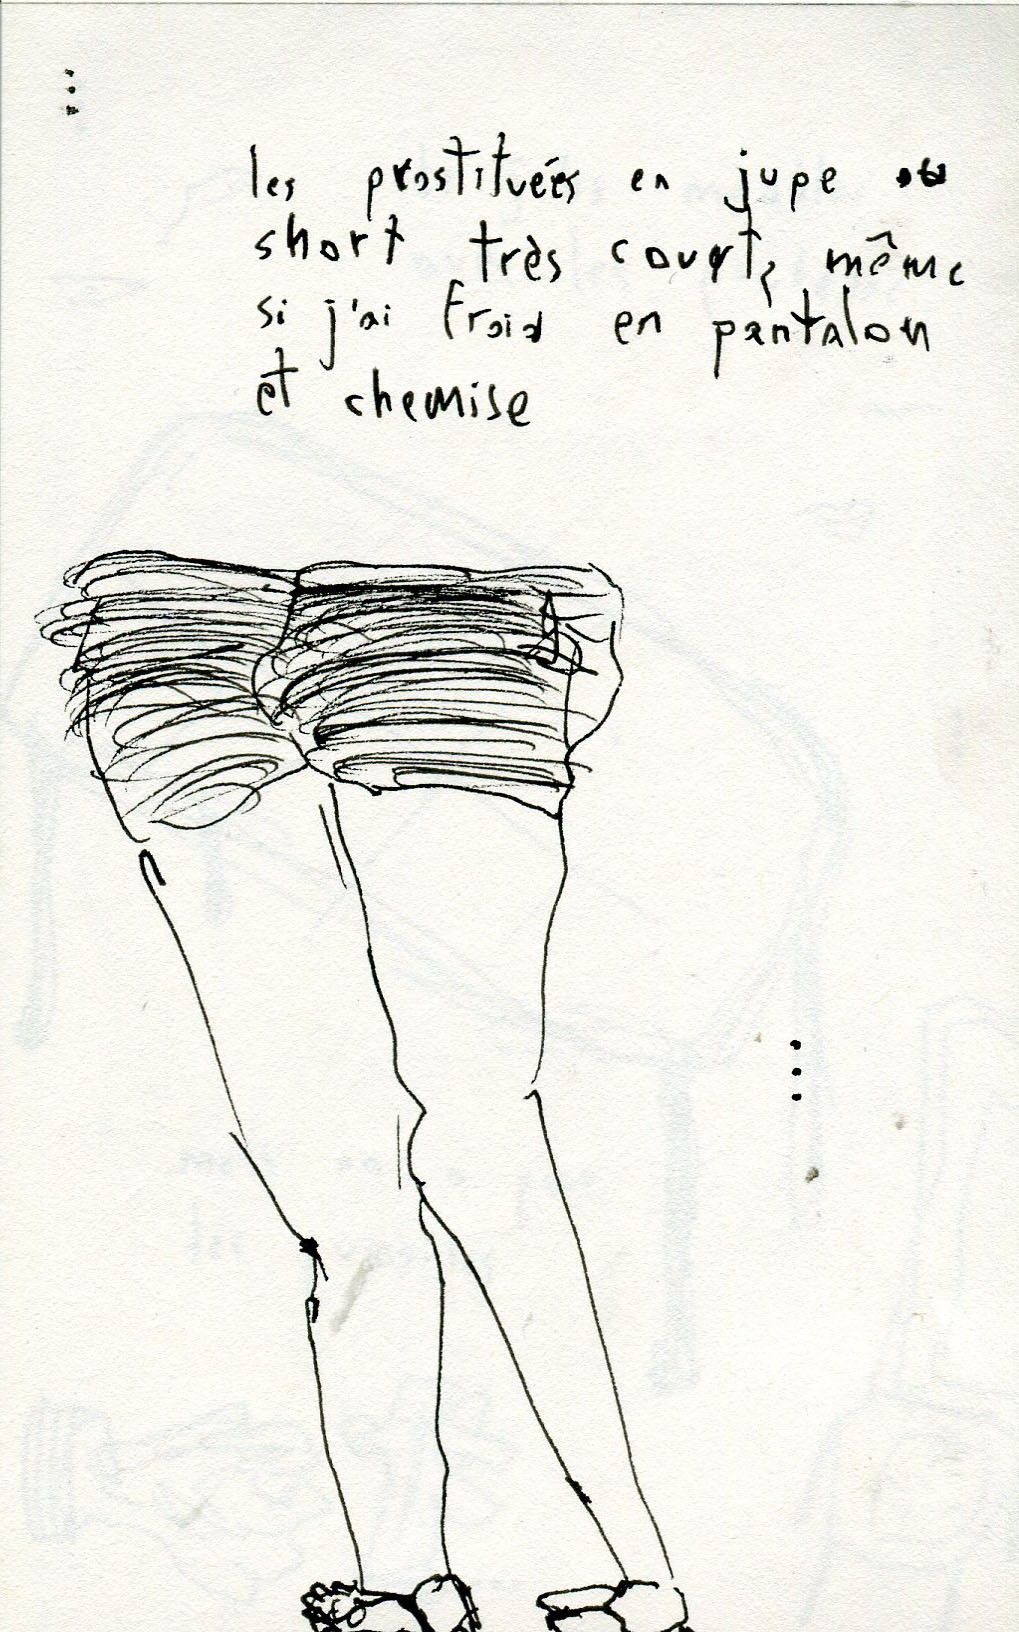 ...
les prostituées en jupe ou
short très court, même
si j'ai froid en pantalon
et chemise
...